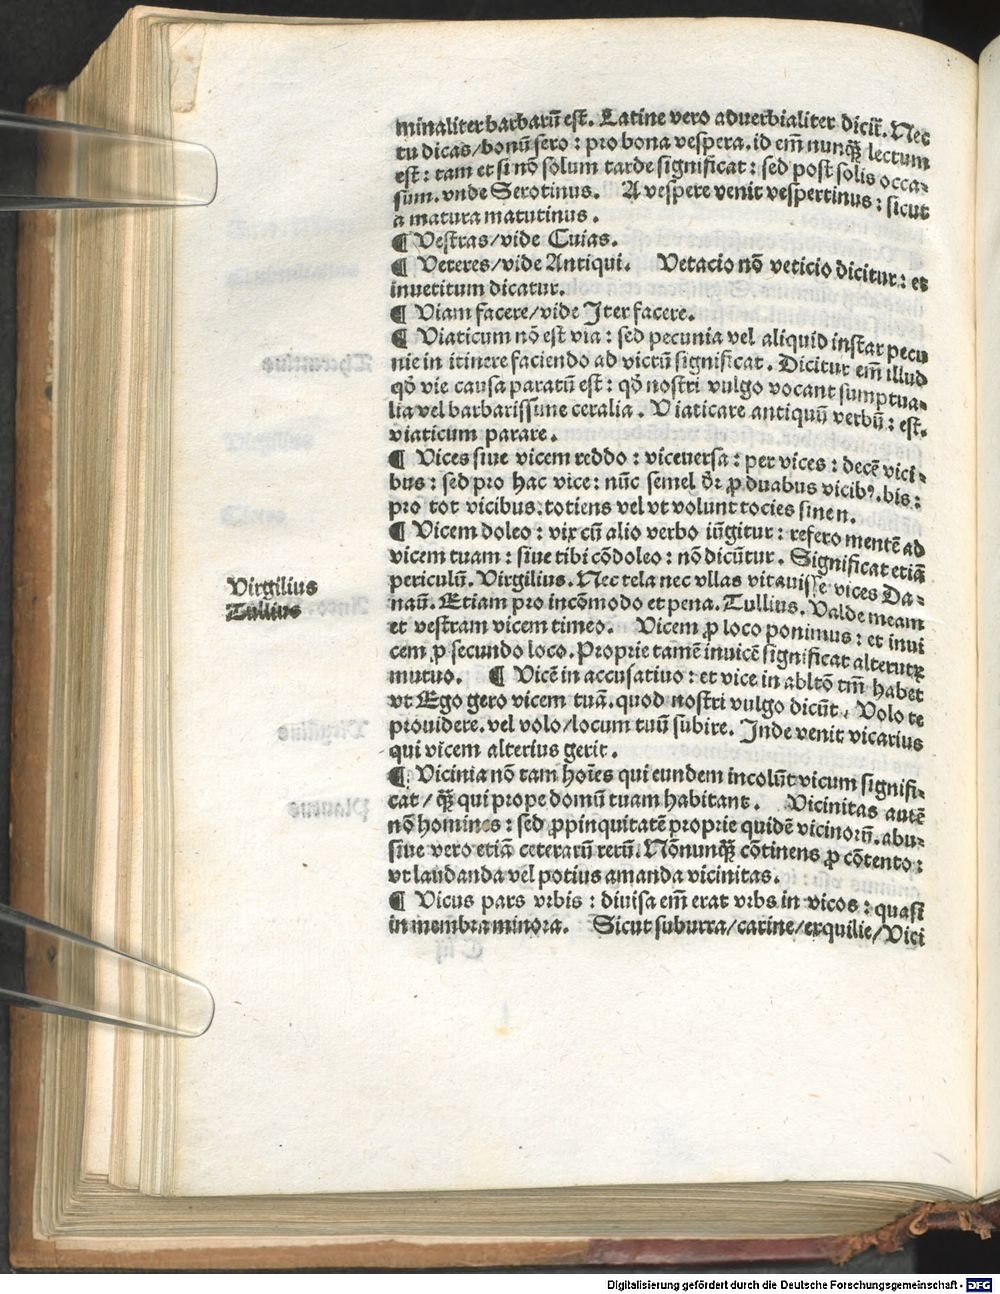 minaliter barbarū est. Latine vero aduerbialiter dicit̄. Nec
tu dicas/bonū sero : pro bona vespera. id em̄ nunqȝ lectum
est : tam et si nō solum tarde significat : sed post solis occa-
sum. vnde Serotinus. A vespere venit vespertinus : sicut
a matura matutinus.
¶ Vestras/vide Cuias.
¶ Veteres/vide Antiqui. Vetacio nō veticio dicitur : et
inuetitum dicatur.
¶ Viam facere/vide Iter facere.
¶ Viaticum nō est via : sed pecunia vel aliquid instar pecu
nie in itinere faciendo ad victū significat. Dicitur em̄ illud
qd̄ vie causa paratū est : qd̄ nostri vulgo vocant sumptua-
lia vel barbarissime ceralia. Viaticare antiquū verbū : est.
viaticum parare.
¶ Vices siue vicem reddo : viceuersa : per vices : decē vici-
bus : sed pro hac vice : nūc semel dr̄ ꝓ duabus vicibꝰ. bis :
pro tot vicibus. totiens vel vt volunt tocies sine n.
¶ Vicem doleo : vix cū alio verbo iūgitur : refero mentē ad
vicem tuam : siue tibi cōdoleo : nō dicūtur. Significat etiā
periculū. Virgilius. Nec tela nec vllas vitauisse vices Da-
naū. Etiam pro incōmodo et pena. Tullius. Valde meam
et vestram vicem timeo. Vicem ꝓ loco ponimus : et inui
cem ꝓ secundo loco. Proprie tamē inuicē significat alterutȝ
mutuo. ¶ Vicē in accusatiuo : et vice in abltō tm̄ habet
vt Ego gero vicem tuā. quod nostri vulgo dicūt. Volo te
prouidere. vel volo/locum tuū subire. Inde venit vicarius
qui vicem alterius gerit.
¶ Vicinia nō tam hoīes qui eundem incolūt vicum signifi-
cat/ qȝ qui prope domū tuam habitant. Vicinitas autē
nō homines : sed ꝓpinquitatē proprie quidē vicinorū. abu-
siue vero etiā ceterarū rerū. Nōnunqȝ cōtinens ꝓ cōtento :
vt laudanda vel potius amanda vicinitas.
¶ Vicus pars vrbis : diuisa em̄ erat vrbs in vicos : quasi
in membra minora. Sicut suburra/carine/exquilie/Vici
Virgilius
Tullius
Digitalisierung gefördert durch die Deutsche Forschungsgemeinschaft - DFG